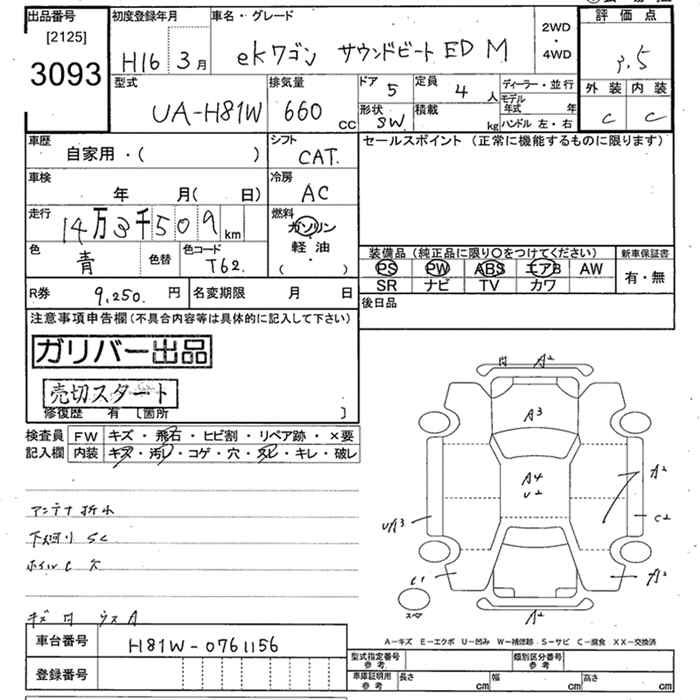 出品番号 初度登録年月 車名・グレード 評価点
[2125] 2WD
3093 H16 3月 ekワゴン サウンドビート ED M ・ 3.5
4WD
型式 排気量 ドア 5 定員 4人 ディーラー・並行 外装 内装
UA-H81W 660 cc 形状 SW 積載 kg モデル年式 年 C C
ハンドル 左・右
車歴 シフト セールスポイント (正常に機能するものに限ります)
自家用・( ) CAT.
車検 冷房
年 月( 日) AC
走行 燃料
14万3千509km ガソリン
色 色替 色コード 軽油 装備品 (純正品に限り〇をつけてください) 新車保証書
青 T62. ・( ) PS PW ABS エアB AW 有・無
SR ナビ TV カワ
R券 9,250. 円 名変期限 月 日 後日品
注意事項申告欄(不具合内容等は具体的に記入して下さい)
ガリバー出品
売切スタート
修復歴 有 [箇所 ]
検査員 FW キズ・飛石・ヒビ割・リペア跡・×要
記入欄 内装 キズ・汚レ・コゲ・穴・スレ・キレ・破レ
A2
A3
A4
U2
A2
UA3 C2
C1 A2
スペア
A2
アンテナ折れ
下廻り SC
ホイルC 欠
A−キズ E−エクボ U−凹み W−補修跡 S−サビ C−腐食 XX−交換済
車台番号 H81W-0761156
登録番号
型式指定番号 参考 類別区分番号 参考
車庫証明用 参考 長さ cm 幅 cm 高さ cm